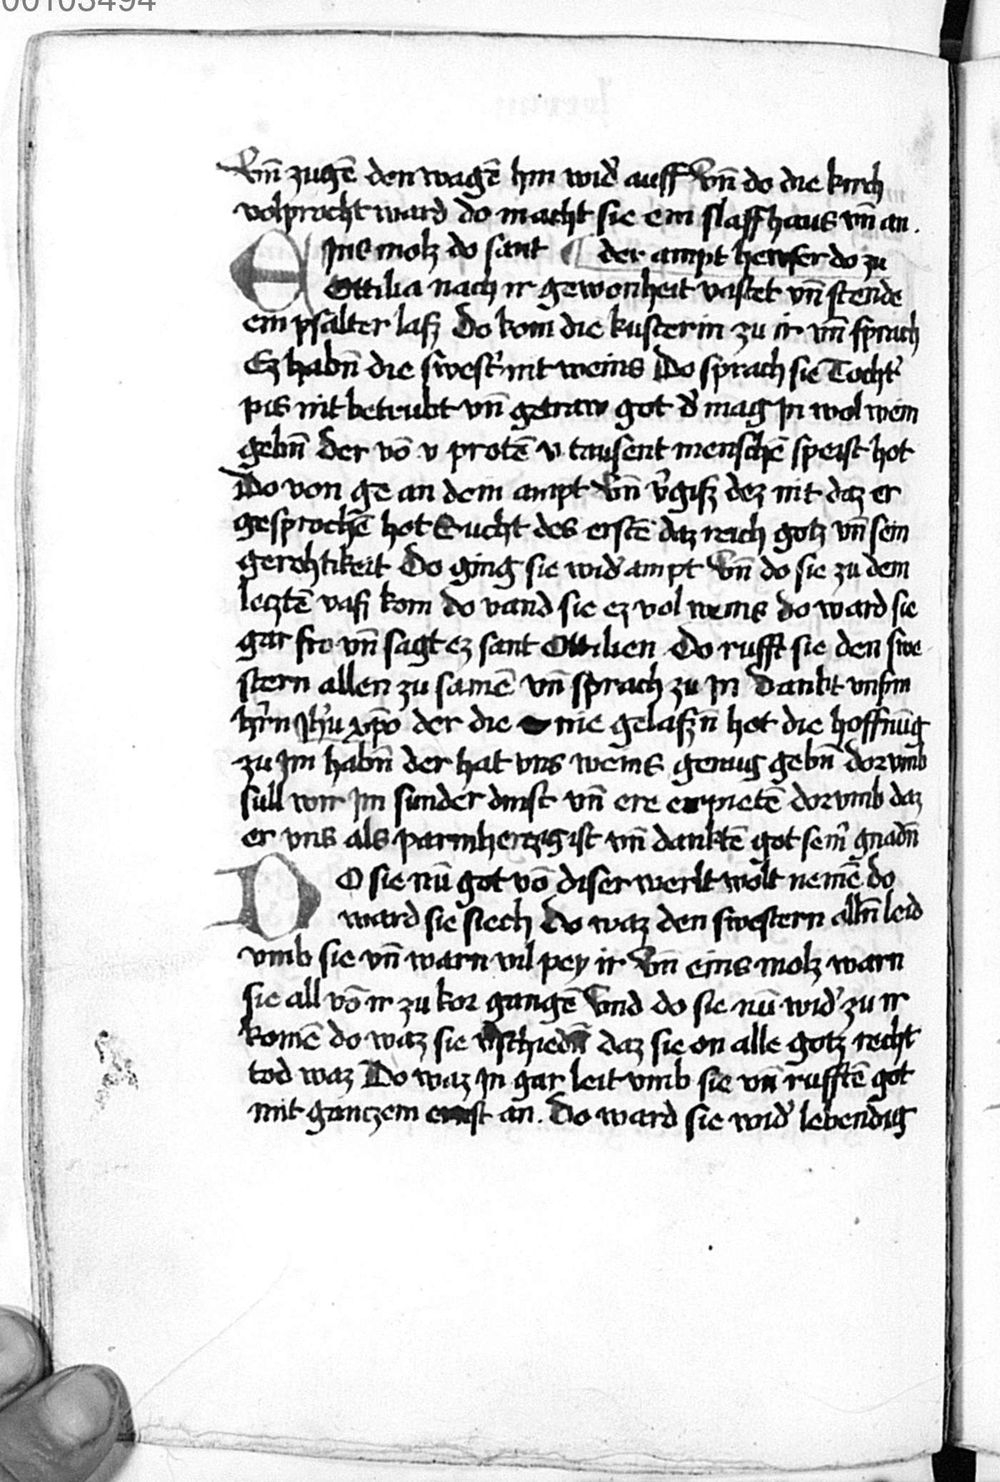 00103494
Vnd zugē den wagē hin wid' auff Vn̄ do die kirch
volprocht ward do macht sie ein slaffhaus vn̄ an
der ampt hewser do zu
Eins molz do sant
Ottilia nach ir gewonheit vastet vn̄ stende
ein psalter lasz Do kom die kusterin zu ir vn̄ sprach
Ez habn̄ die swest' nit weins Do sprach sie Tocht'
pis nit betrubt vn̄ getraw got d' mag in wol wein
gebn̄ der vō v protē v tausent menschē speist hot
Do von ge an dein ampt Vn̄ v'gisz dez nit daz er
gesprochē hot Sucht des erstē daz reich gotz vn̄ sein
gerehtikeit Do ging sie wid' ampt Vn̄ do sie zu dem
letztē vasz kom do vand sie ez vol weins do ward sie
gar fro vn̄ sagt ez sant Ottilien Do rufft sie den swe
stern allen zu samē vn̄ sprach zu in Danckt vnserm
h'rn Jh'u xp̄o der die nie gelaszn̄ hot die hoffnūg
zu im habn̄ der hat vns weins genug gebn̄ dorvmb
sull wir im sunder dinst vn̄ ere erpietē dorvmb daz
er vns als parmherczig ist vn̄ danktē got sein' gnadn̄
DO sie nū got vō diser werlt wolt nemē do
ward sie siech Do waz den swestern alln̄ leid
vmb sie vn̄ warn vil pey ir Vn̄ eins molz warn
sie all vō ir zu kor gangē Vnd do sie nū wid' zu ir
komē do waz sie v'schiedn̄ daz sie on alle gotz recht
tod waz Do waz in gar leit vmb sie vn̄ rufftē got
mit ganczem ernst an. Do ward sie wid' lebendig